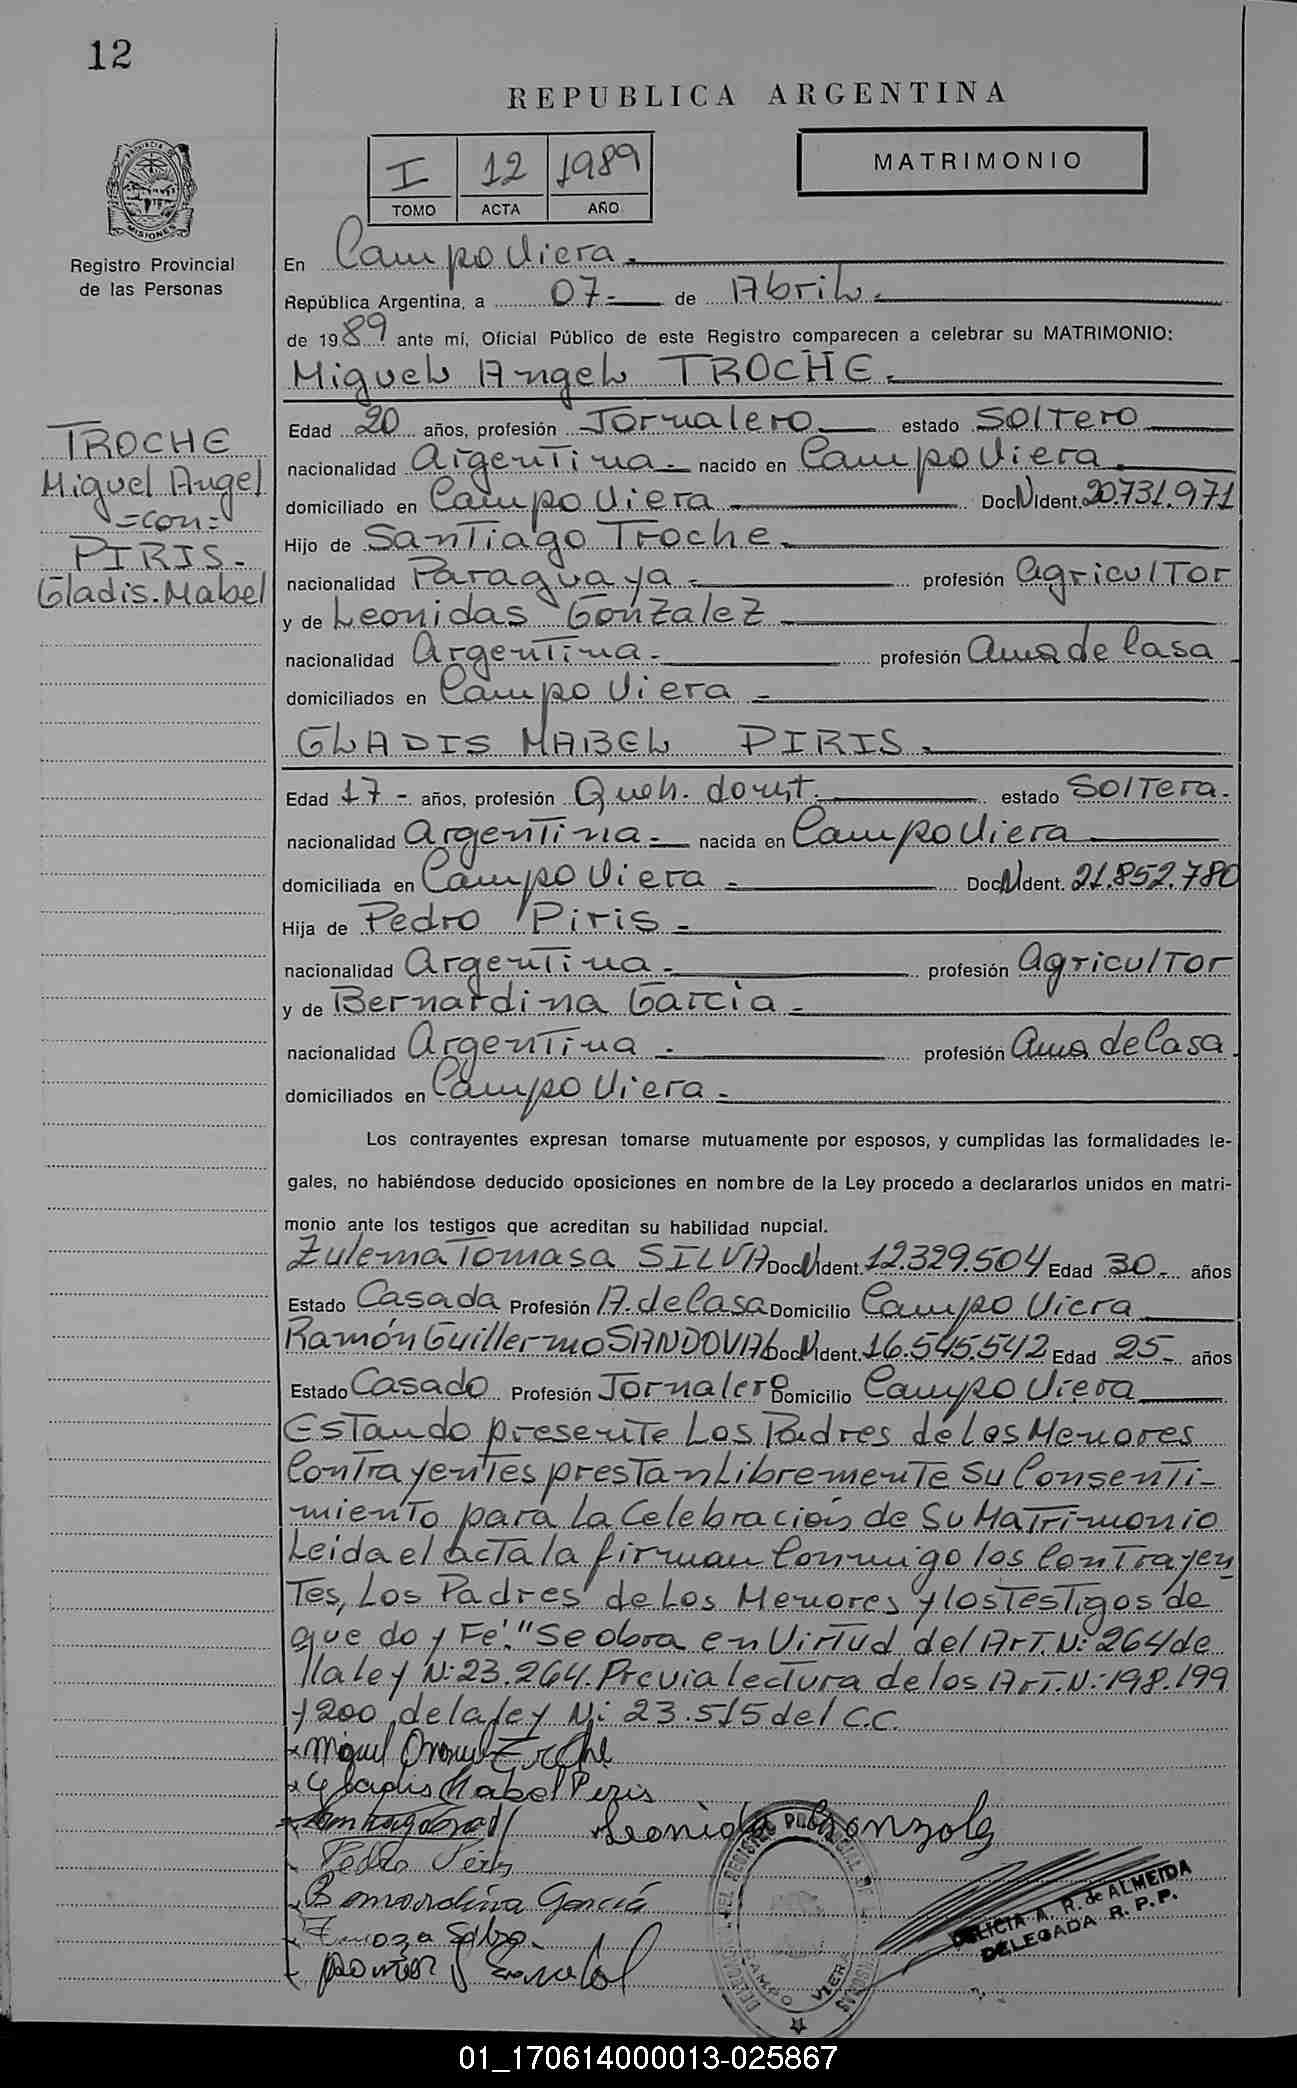 12
REPUBLICA ARGENTINA
I 12 1989
TOMO ACTA AÑO
MATRIMONIO
PROVINCIA DE
MISIONES
Registro Provincial
de las Personas
En Campo Viera.
República Argentina, a 07- de Abril.
de 1989 ante mí, Oficial Público de este Registro comparecen a celebrar su MATRIMONIO:
Miguel Angel TROCHE.
TROCHE
Miguel Angel
=con=
PIRIS.
Gladis. Mabel
Edad 20 años, profesión Jornalero estado Soltero
nacionalidad Argentina. nacido en Campo Viera.
domiciliado en Campo Viera Doc N Ident. 20.731.971
Hijo de Santiago Troche.
nacionalidad Paraguaya - profesión agricultor
y de Leonidas Gonzalez
nacionalidad Argentina. profesión ama de Casa.
domiciliados en Campo Viera -
GLADIS MABEL PIRIS.
Edad 17- años, profesión Queh. domt. estado Soltera.
nacionalidad Argentina. nacida en Campo Viera
domiciliada en Campo Viera - Doc N Ident. 21.852.780
Hija de Pedro Piris -
nacionalidad Argentina. profesión Agricultor
y de Bernardina García -
nacionalidad Argentina. profesión Ama de Casa.
domiciliados en Campo Viera.
Los contrayentes expresan tomarse mutuamente por esposos, y cumplidas las formalidades le-
gales, no habiéndose deducido oposiciones en nombre de la Ley procedo a declararlos unidos en matri-
monio ante los testigos que acreditan su habilidad nupcial.
Zulema Tomasa SILVA Doc N Ident. 12.329.504 Edad 30- años
Estado Casada Profesión A. de Casa Domicilio Campo Viera
Ramón Guillermo SANDOVAL Doc N Ident. 16.545.542 Edad 25- años
Estado Casado Profesión Jornalero Domicilio Campo Viera
Estando presente Los Padres de los Menores
Contrayentes prestan Libremente su Consenti-
miento para La Celebración de Su Matrimonio
Leida el acta la firman Conmigo los Contrayen
Tes, Los Padres de Los Menores y los Testigos de
que doy Fé. "Se obra en Virtud del Art. N: 264 de
lla ley N: 23.264. Previa lectura de los Art. N: 198.199
y 200 de la ley N: 23.515 del C.C.
x Miguel Troche
x Gladis Mabel Piris
Leonida Gonzalez
Pedro Piris
Bernardina García
CAMPO VIERA
DELICIA A. R. de ALMEIDA
DELEGADA R. P. P.
01_170614000013-025867